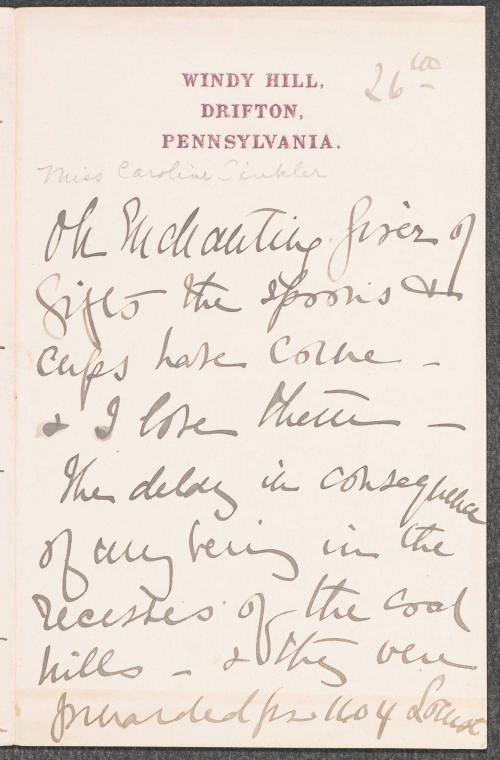 26th
WINDY HILL,
DRIFTON,
PENNSYLVANIA.
Miss Caroline Sinkler
Oh Enchanting Giver of
Gifts the spoons &
cups have come -
& I love them -
The delay in consequence
of my being in the
recesses of the coal
hills - & they were
forwarded from 1104 Locust